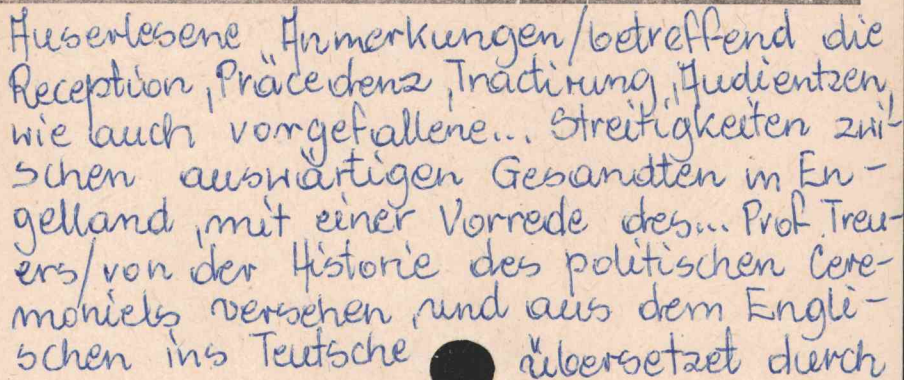 Auserlesene Anmerkungen/betreffend die
Reception, Präcedenz, Tractirung, Audientzen,
wie auch vorgefallene... Streitigkeiten zwi-
schen auswärtigen Gesandten in En-
gelland, mit einer Vorrede des... Prof. Treu-
ers/von der Historie des politischen Cere-
moniels versehen, und aus dem Engli-
schen ins Teutsche übersetzet durch